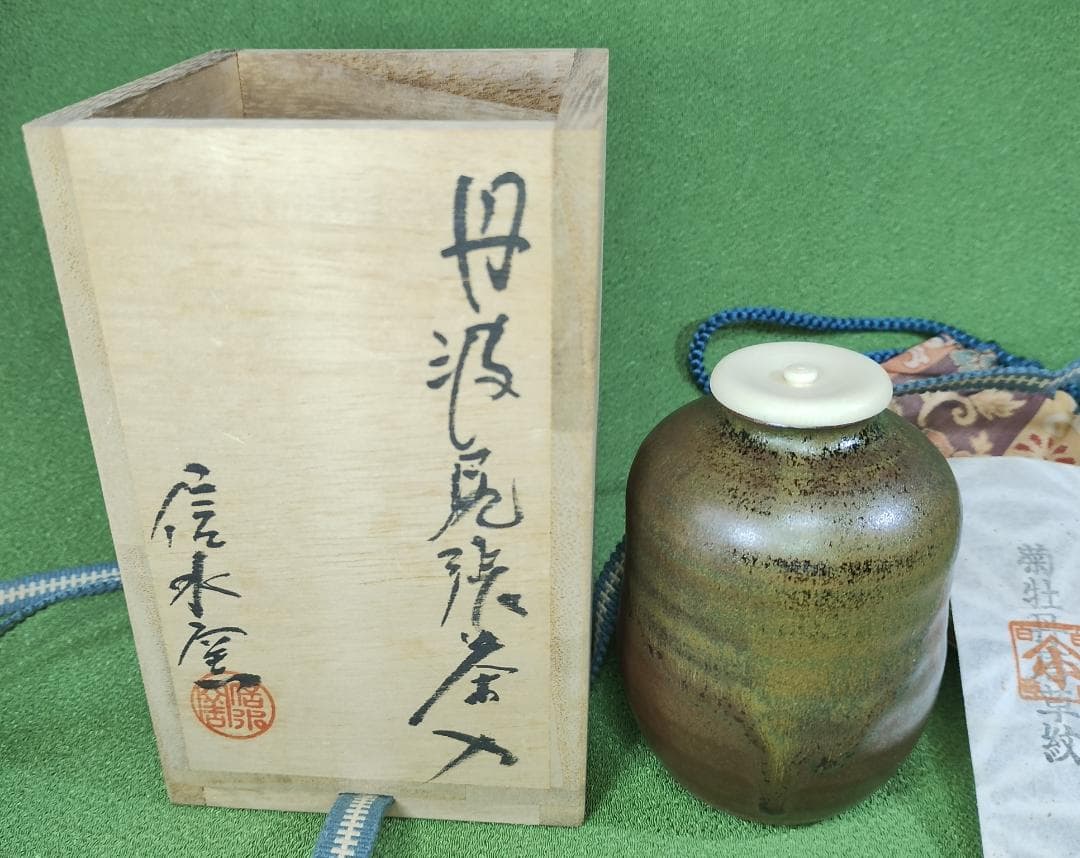 丹波尻張茶入
信水窯
菊牡丹唐草紋